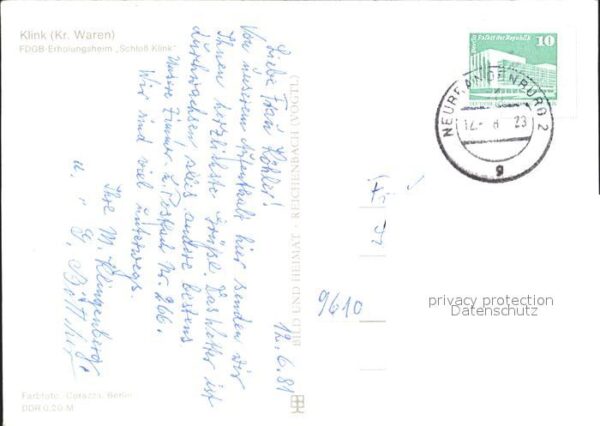 Klink (Kr. Waren)
FDGB-Erholungsheim „Schloß Klink"
12.6.81
Liebe Frau Köhler!
Von unserem Aufenthalt hier senden wir
Ihnen herzlichste Grüße. Das Wetter ist
durchwachsen alles andere bestens
Unsere Zimmer: Postfach Nr. 266.
Wir sind viel unterwegs.
Ihre M. Klingenberg
u.
BILD UND HEIMAT · REICHENBACH (VOGTL)
Farbfoto: Corazza, Berlin
DDR 0,20 M
Palast der Republik
10
NEUBRANDENBURG 2
g
Fr
9610
privacy protection
Datenschutz